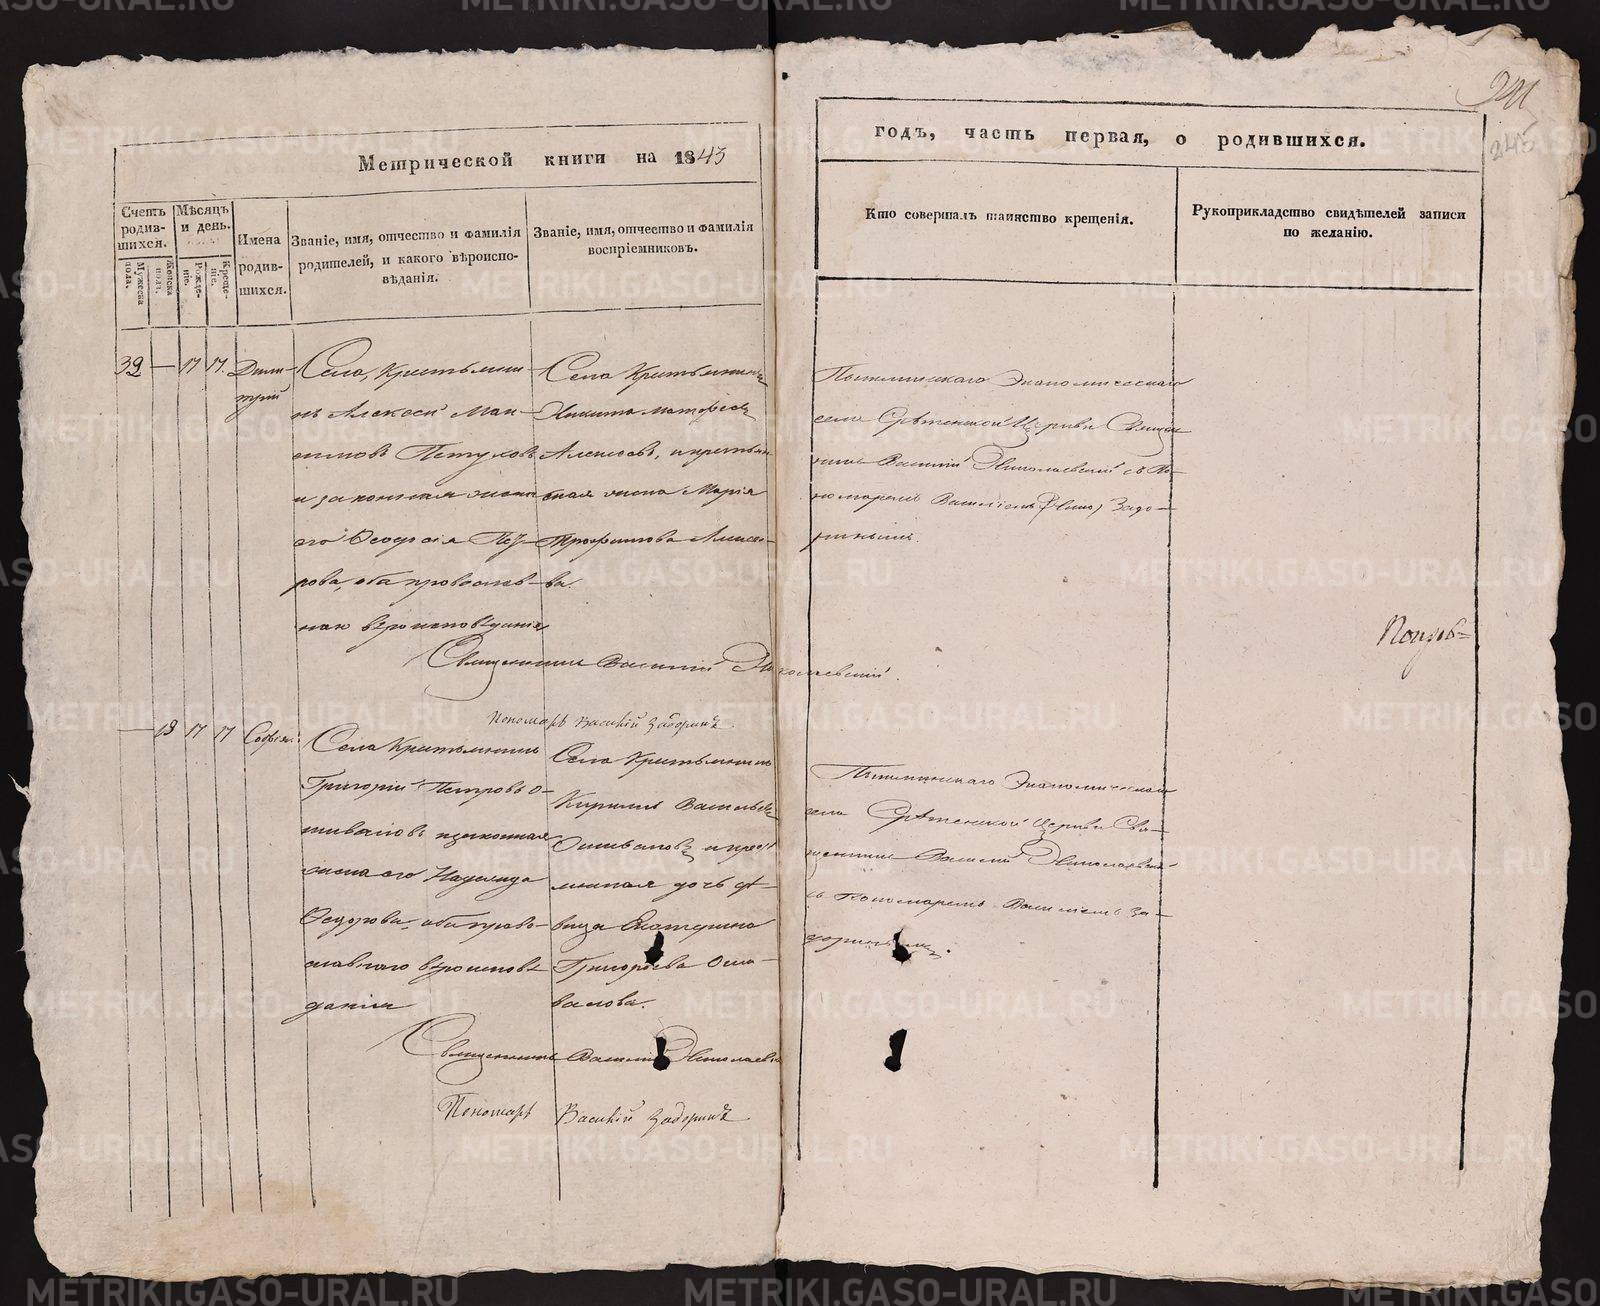 Метрической книги на 1843
годъ, часть первая, о родившихся.
241
245
Счетъ родив-шихся.
Мужеска пола.
Женска пола.
Мѣсяцъ и день.
Рожде-нія.
Креще-нія.
Имена родив-шихся.
Званіе, имя, отчество и фамилія родителей, и какого вѣроиспо-вѣданія.
Званіе, имя, отчество и фамилія воспріемниковъ.
Кто совершалъ таинство крещенія.
Рукоприкладство свидѣтелей записи по желанію.
39 — 17 17. Дими-
трій
Села, Крестьяни-
нъ Алексей Мак-
симовъ Петуховъ
и законная жена
его Ѳеодосія
рова, оба православ-
наго вѣроисповѣданія
Села Крестьянинъ
Никита Матфеевъ
Алексеевъ, и крестьян
ская жена Марія
Трофимова Алексее-
ва.
Пышминскаго Экономическаго
села Срѣтенской Церкви Священ
никъ Василій Николаевскій съ По-
номаремъ Василіемъ Задо-
ринымъ.
Священникъ Василій Николаевскій.
Пономарь Василій Задоринъ.
— 13 17 17 Софія.
Села Крестьянинъ
Григорій Петровъ О-
шиваловъ и законная
жена его Надежда
Ѳедорова, оба право-
славнаго вѣроисповѣ-
данія
Села Крестьянинъ
Кириллъ Васильевъ
Ошиваловъ и крест
дочь дѣ-
вица Екатерина
Григорьева Оши-
валова.
Пышминскаго Экономическаго
села Срѣтенской Церкви Свя-
щенникъ Василій Николаевскій
съ Пономаремъ Василіемъ За-
доринымъ.
Священникъ Василій Николаевскій
Пономарь Василій Задоринъ
METRIKI.GASO-URAL.RU